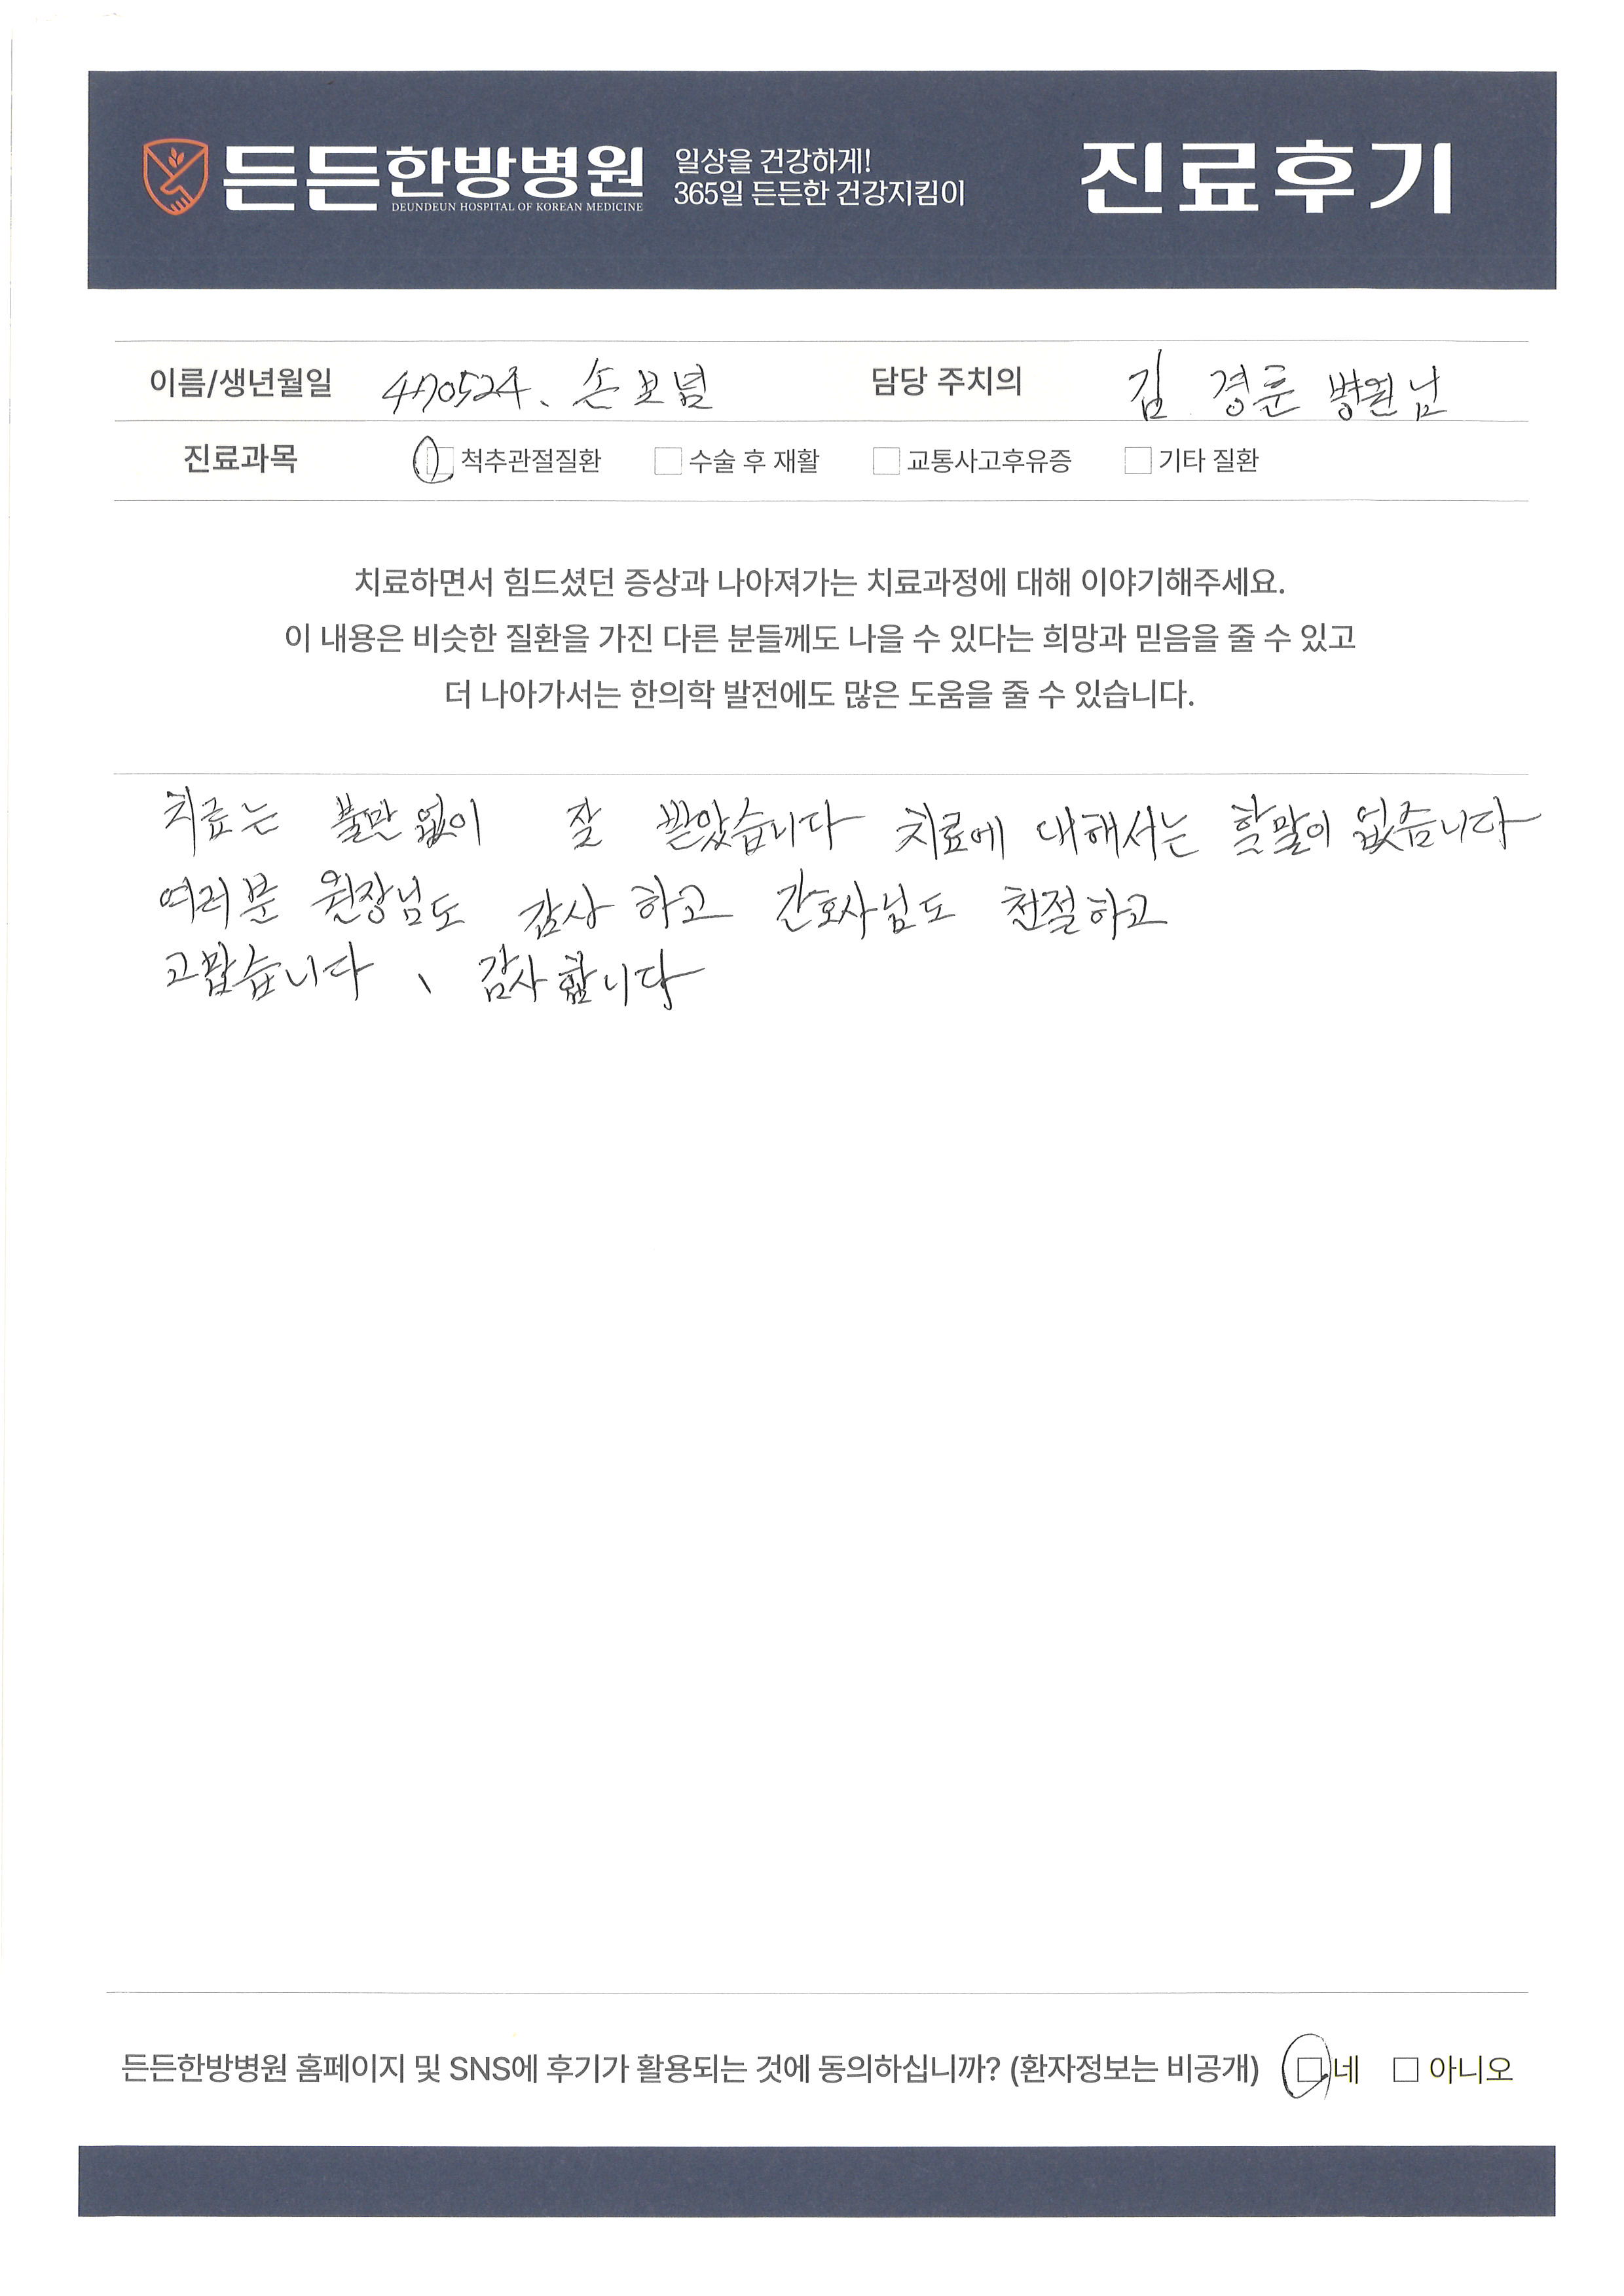 든든한방병원
DEUNDEUN HOSPITAL OF KOREAN MEDICINE
일상을 건강하게!
365일 든든한 건강지킴이
진료후기
이름/생년월일 470524. 손보념 담당 주치의 김 경훈 병원님
진료과목 척추관절질환 수술 후 재활 교통사고후유증 기타 질환
치료하면서 힘드셨던 증상과 나아져가는 치료과정에 대해 이야기해주세요.
이 내용은 비슷한 질환을 가진 다른 분들께도 나을 수 있다는 희망과 믿음을 줄 수 있고
더 나아가서는 한의학 발전에도 많은 도움을 줄 수 있습니다.
치료는 불만 없이 잘 받았습니다 치료에 대해서는 할말이 없줍니다
여러분 원장님도 감상 하고 간호사님도 친절하고
고맙습니다 、 감사합니다
든든한방병원 홈페이지 및 SNS에 후기가 활용되는 것에 동의하십니까? (환자정보는 비공개) 네 아니오